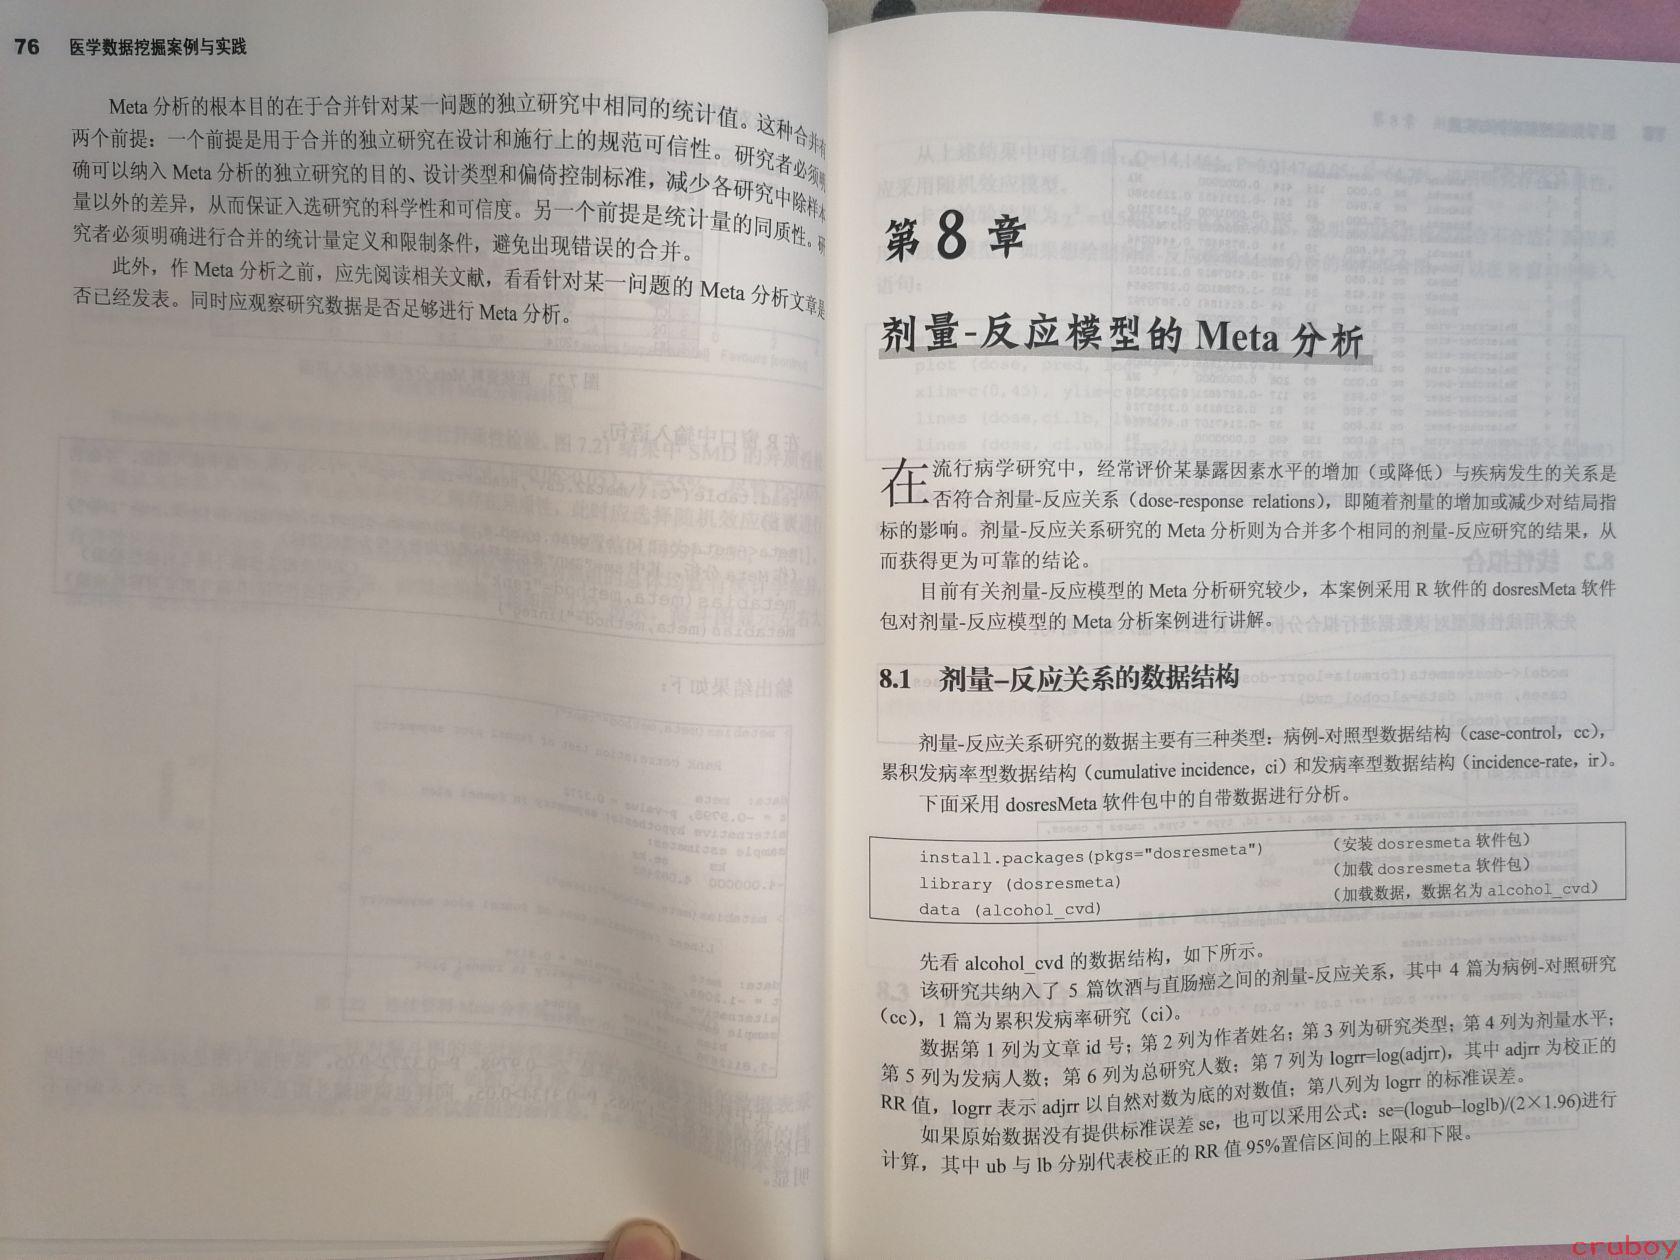 76 医学数据挖掘案例与实践
Meta 分析的根本目的在于合并针对某一问题的独立研究中相同的统计值。这种合并有
两个前提：一个前提是用于合并的独立研究在设计和施行上的规范可信性。研究者必须明
确可以纳入 Meta 分析的独立研究的目的、设计类型和偏倚控制标准，减少各研究中除样本
量以外的差异，从而保证入选研究的科学性和可信度。另一个前提是统计量的同质性。研
究者必须明确进行合并的统计量定义和限制条件，避免出现错误的合并。
此外，作 Meta 分析之前，应先阅读相关文献，看看针对某一问题的 Meta 分析文章是
否已经发表。同时应观察研究数据是否足够进行 Meta 分析。
第 8 章
剂量-反应模型的 Meta 分析
在流行病学研究中，经常评价某暴露因素水平的增加（或降低）与疾病发生的关系是
否符合剂量-反应关系（dose-response relations），即随着剂量的增加或减少对结局指
标的影响。剂量-反应关系研究的 Meta 分析则为合并多个相同的剂量-反应研究的结果，从
而获得更为可靠的结论。
目前有关剂量-反应模型的 Meta 分析研究较少，本案例采用 R 软件的 dosresMeta 软件
包对剂量-反应模型的 Meta 分析案例进行讲解。
8.1 剂量–反应关系的数据结构
剂量-反应关系研究的数据主要有三种类型：病例-对照型数据结构（case-control，cc），
累积发病率型数据结构（cumulative incidence，ci）和发病率型数据结构（incidence-rate，ir）。
下面采用 dosresMeta 软件包中的自带数据进行分析。
install.packages(pkgs="dosresmeta") （安装 dosresmeta 软件包）
library (dosresmeta) （加载 dosresmeta 软件包）
data (alcohol_cvd) （加载数据，数据名为 alcohol_cvd）
先看 alcohol_cvd 的数据结构，如下所示。
该研究共纳入了 5 篇饮酒与直肠癌之间的剂量-反应关系，其中 4 篇为病例-对照研究
（cc），1 篇为累积发病率研究（ci）。
数据第 1 列为文章 id 号；第 2 列为作者姓名；第 3 列为研究类型；第 4 列为剂量水平；
第 5 列为发病人数；第 6 列为总研究人数；第 7 列为 logrr=log(adjrr)，其中 adjrr 为校正的
RR 值，logrr 表示 adjrr 以自然对数为底的对数值；第八列为 logrr 的标准误差。
如果原始数据没有提供标准误差 se，也可以采用公式：se=(logub–loglb)/(2×1.96)进行
计算，其中 ub 与 lb 分别代表校正的 RR 值 95%置信区间的上限和下限。
cruboy